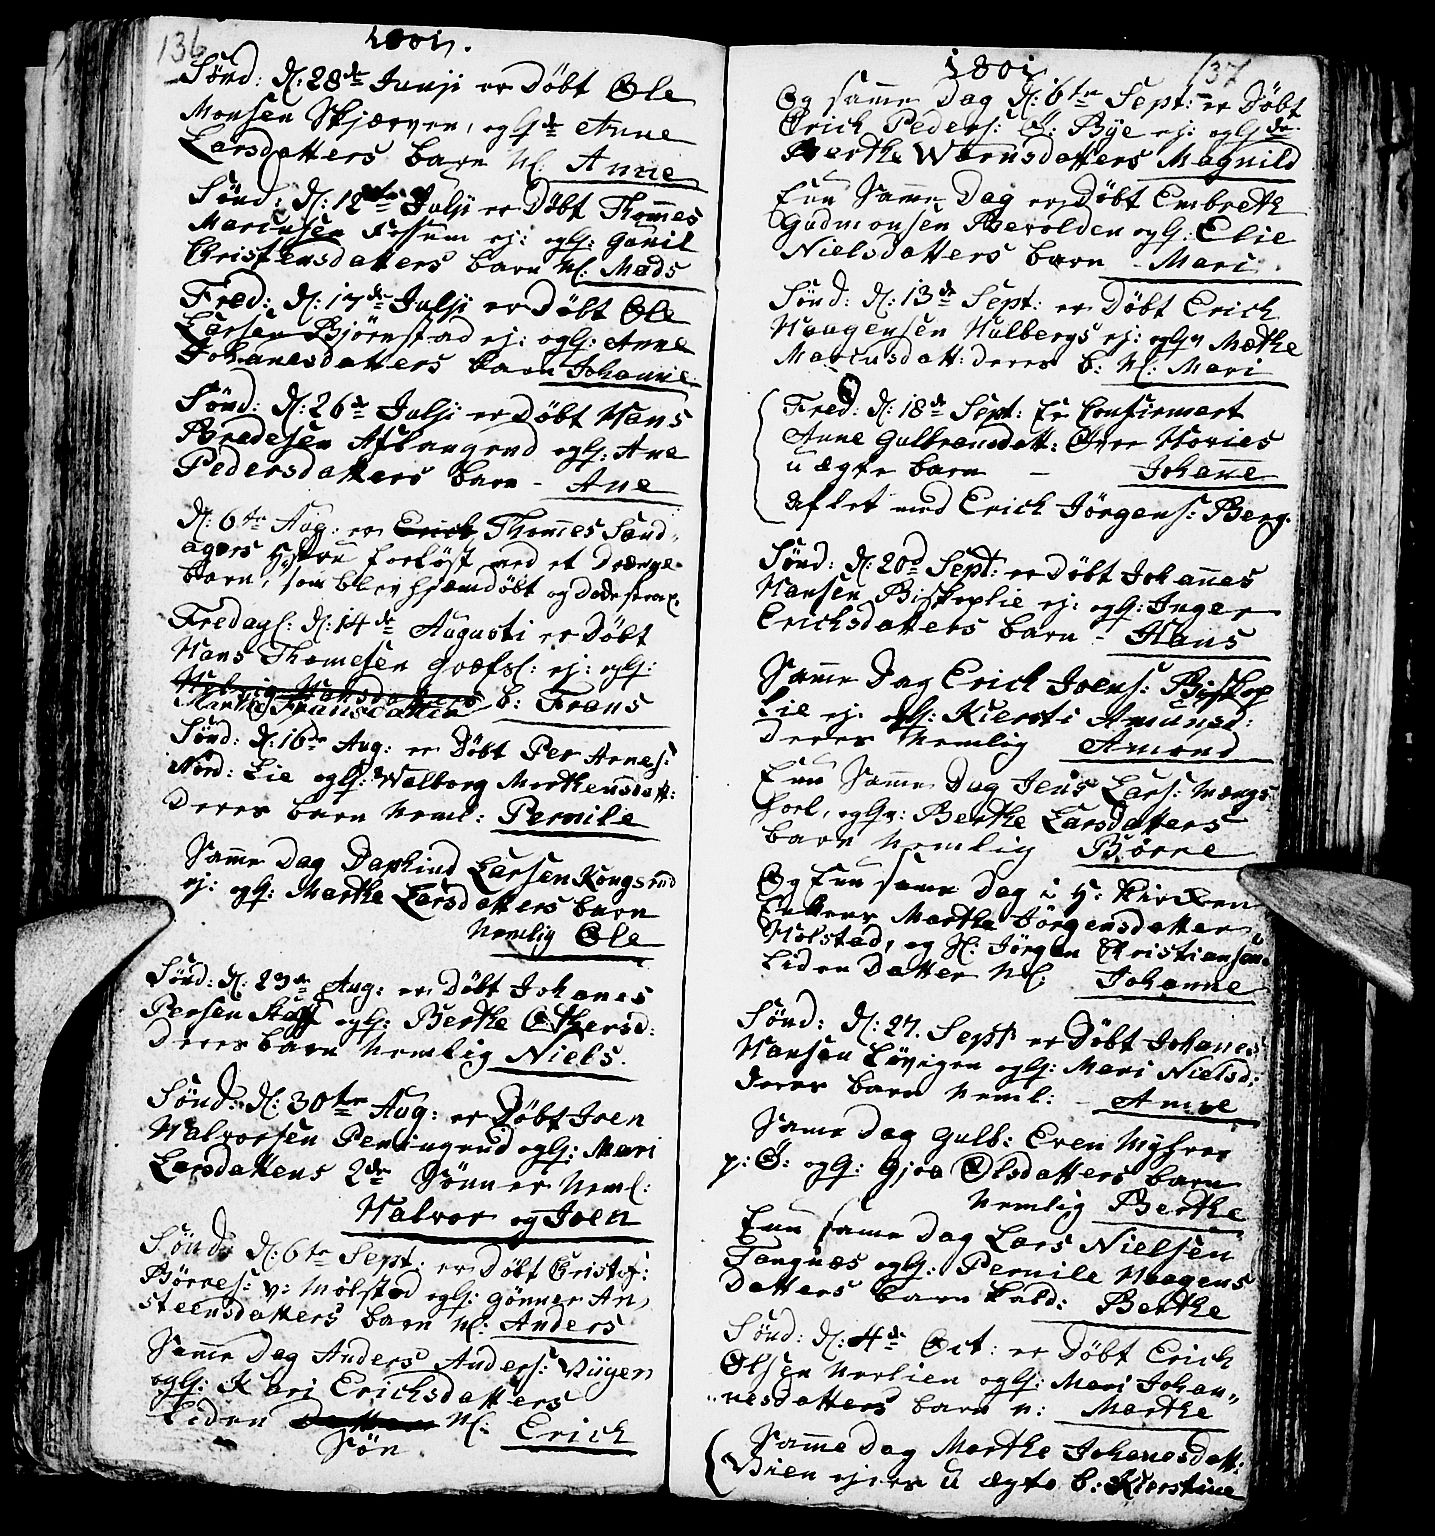 136
1801.
Sønd: d: 28de Junji er Døbt Ole
Monsen Skjærven, og Hde Anne
Larsdatters barn Nl. Anne
Sønd: d: 12te Julji er Døbt Thommes
Mariusen Fossum ej: og H: Gunil
Christensdatters barn Nl: Mads
Fred: d: 17de Julji er Døbt Ole
Larsen Bjørnstad ej: og H: Anne
Johanesdatters barn Johanne
Sønd: d: 26de Julji er Døbt Hans
Bredesen Aslangrud og H: Ane
Pedersdatters barn - Ane
d: 6te Aug: er Erich Thommes Sand-
agers Hustru forløst med et Drænge-
barn, som blev hjemdøbt og Døde
Fredag: d: 14de Augusti er Døbt
Hans Thomesen Græfsl: ej: og H:
Marthe Fransdatters b: Frans
Sønd: d: 16de Aug: er Døbt Per Arnes:
Nord: Lie og H: Walborg Morthensdatt:
Deres barn Neml: Pernile
Samme Dag Daphind Larsen Kongsrud
ej: og H: Marthe Larsdatters barn
Nemlig Ole
Sønd: d: 23de Aug: er Døbt Johanes
Persen og H: Berthe Othersd:
Deres barn Nemlig Niels.
Sønd: d: 30te Aug: er Døbt Joen
Halvorsen Pensingrud og H: Mari
Larsdatters 2de Sønner Neml:
Halvor og Joen
Sønd: d: 6te Sept: er Døbt Christof:
Børres: v: Molstad og H: Gønner An-
steensdatters barn Nl: Anders
Samme Dag Anders Anders: Viigen
og H: Kari Erichsdatters
Liden Datter Nl: Erich
Søn
1801
137
Og samme Dag d: 6te Sept: er Døbt
Erich Peders: Ø: Bye ej: og H de
Berthe Warnsdatters Magnild
Enn Samme Dag er Døbt Embreth
Gudmonsen Bevolden og H: Elie
Nielsdatters barn - Mari
Sønd: d: 13de Sept: er Døbt Erich
Haagensen Hulbergs ej: og H: Mæthe
Mariusdatt: deres b: Nl: Mari
Fred: d: 18de Sept: Er Confirmert
Anne Gulbransdatt: Øvre Hovies
uægte barn - Johane
Aflet med Erich Jörgens: Berg.
Sønd: d: 20de Sept: er Døbt Johannes
Hansen Biskoplie ej: og H: Inger
Erichsdatters barn - Hans
Samme Dag Erich Joens: Biskop
Lie ej: og H: Kiersti Amunsd:
Deres Nemlig Amond
Enn Samme Dag Jens Lars: Mængs-
hoel, og H: Berthe Larsdatters
barn Nemlig Børre
Og Enn samme Dag i H: Kircken
Marthe Jörgensdatter
Holstad, og H: Jörgen Christiansöns
Liden Datter Nl. Johanne
Sønd: d: 27. Sept er Døbt Johanes
Hansen Løvigen og H: Mari Nielsd:
Deres barn Neml: - Anne
Samme Dag Gulb: Even Myhrer
p: Ø: og H: Gjoa Olsdatters barn
Nemlig Berthe
Enn samme Dag Lars Nielsen
Tangnæs og H: Pernile Haagens
Datters barn kald: Berthe
Sønd: d: 4de Oct: er Døbt Erich
Olsen Norlien og H: Mari Johan-
nesdatters barn n: Marthe
Samme Dag Marthe Johanesdatt:
Vien ejers Uægte b: Kierstine